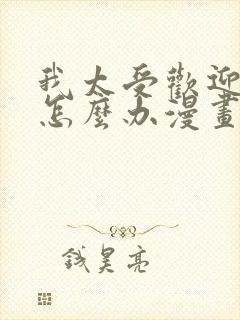 我太受歡迎
怎麼办漫畫
钱昊亮